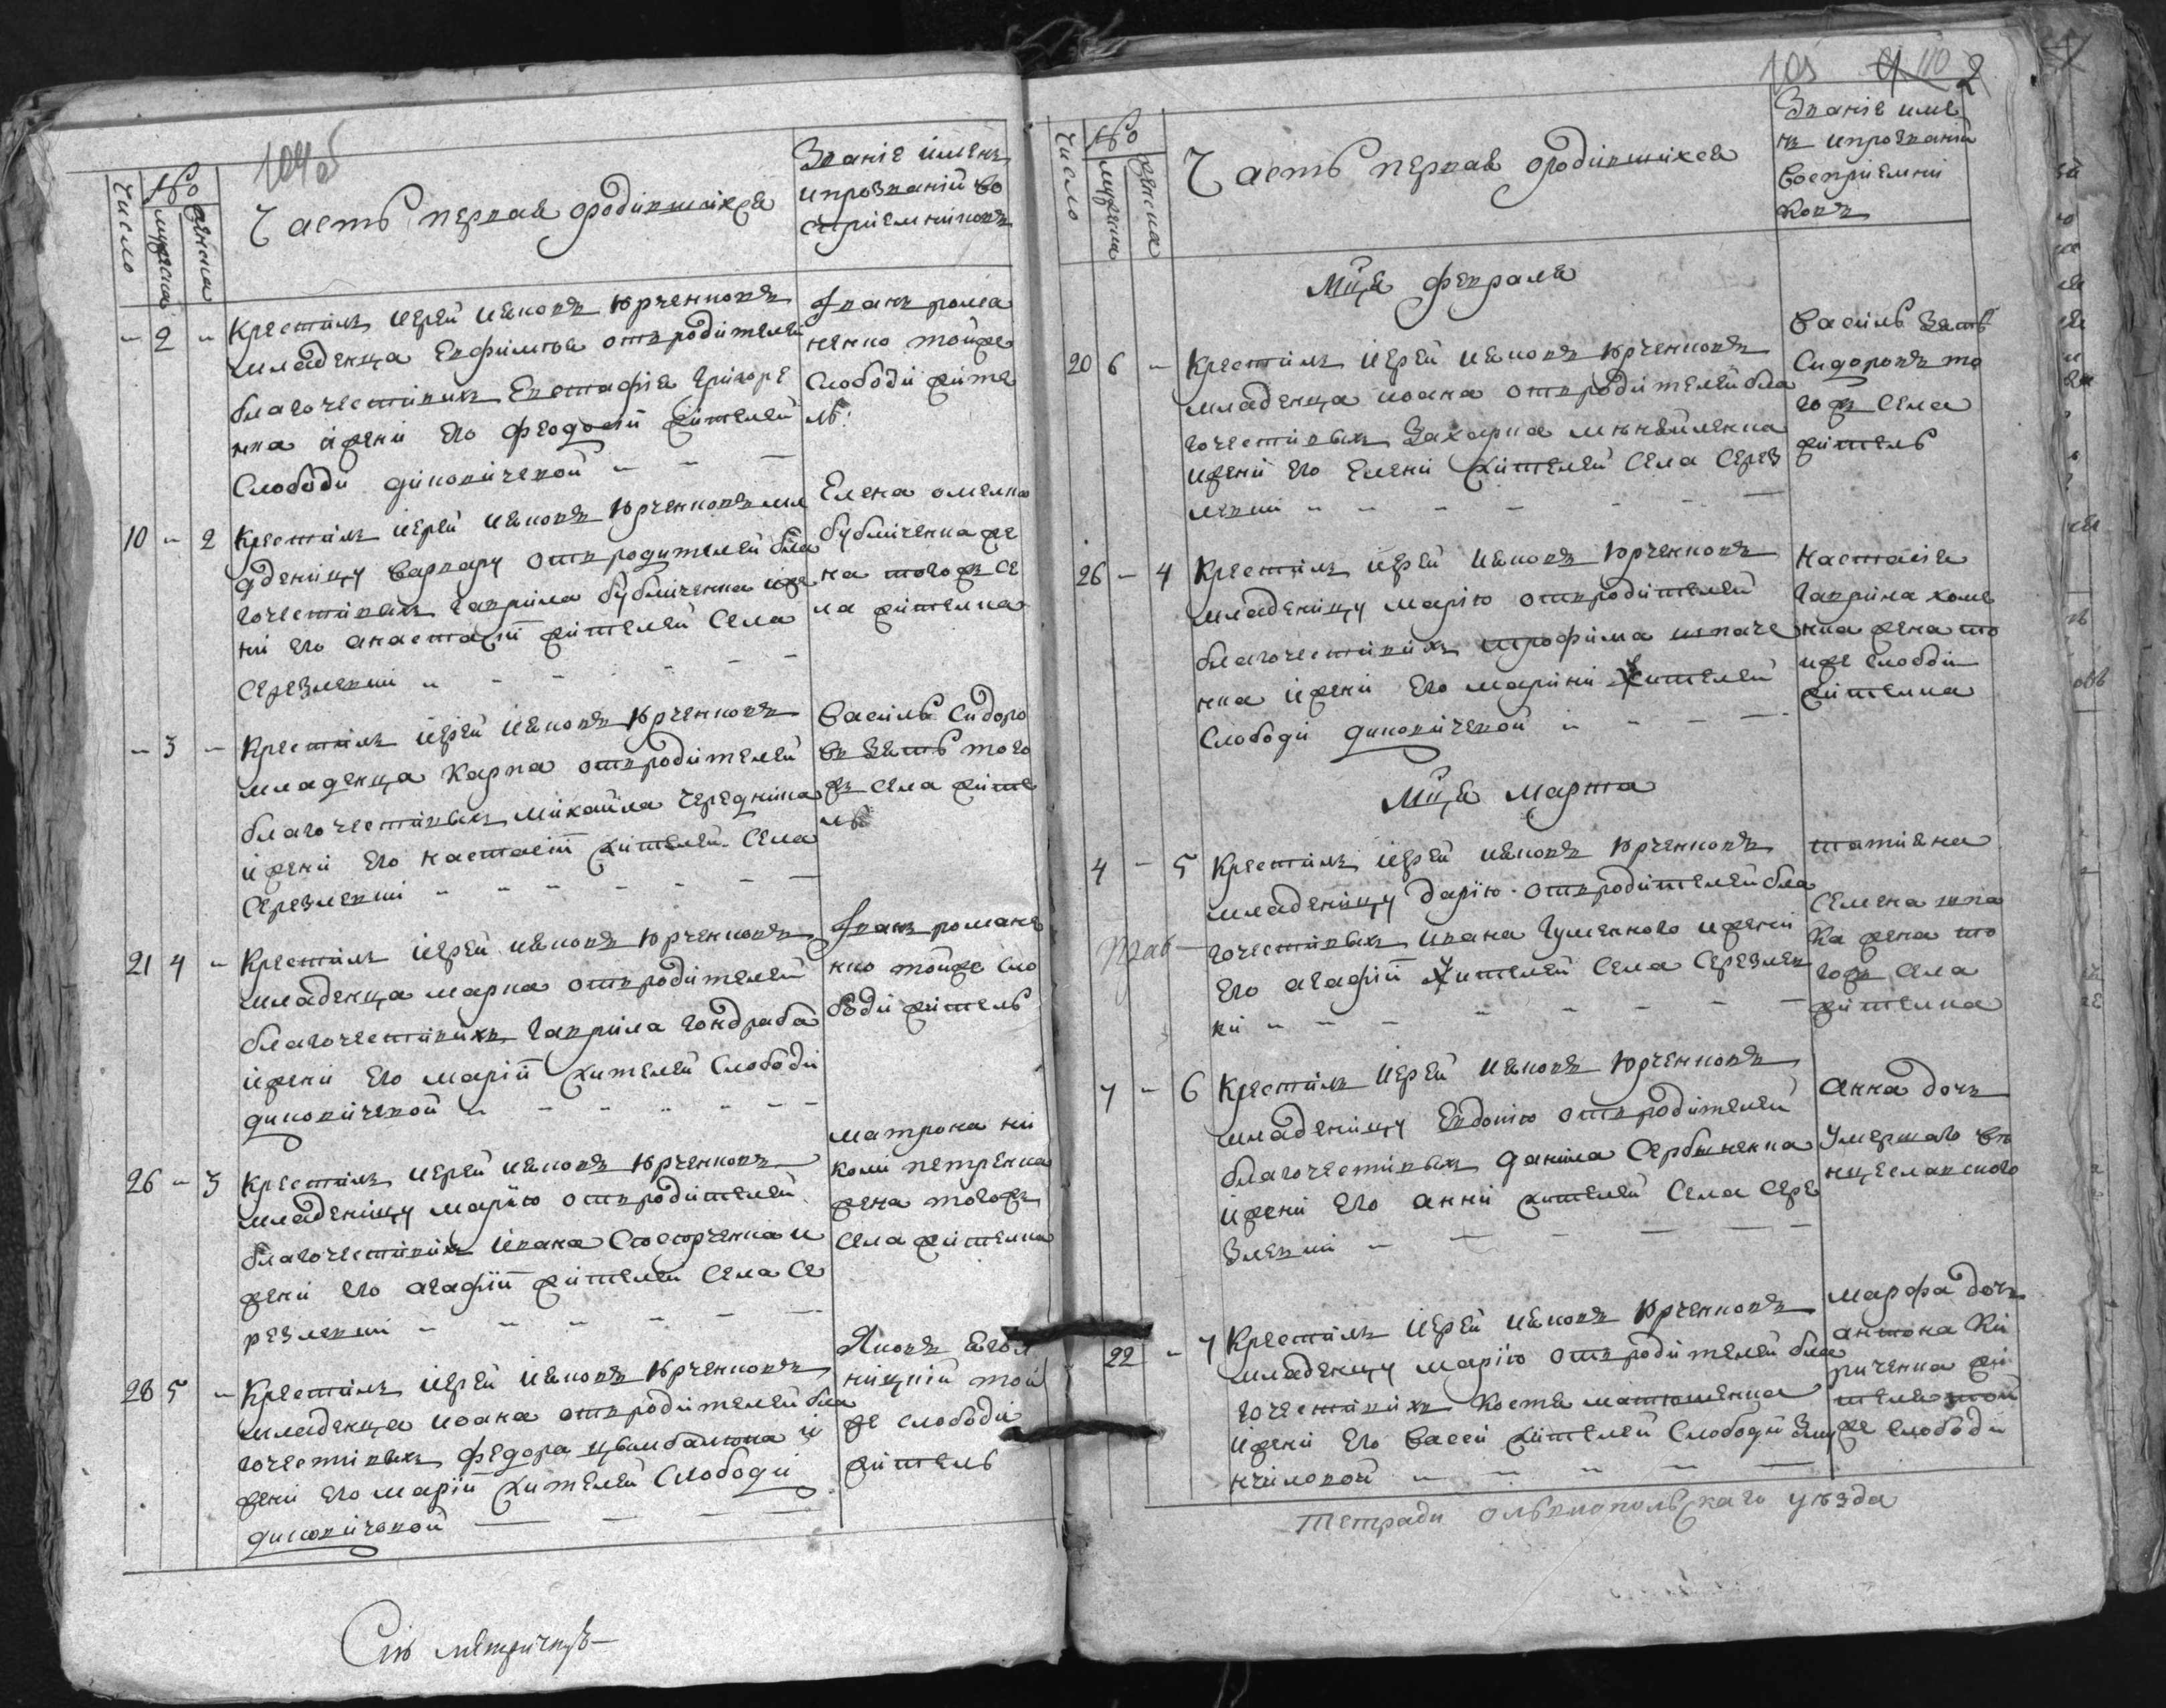 104об
Число
№
мужеска
женска
Часть первая ѡродившихся
Званіе именъ
ипрозваній во
спріемниковъ
- 2 - Крестилъ іерей іаковъ Юрченковъ
младенца Евфимъа отъродителей
благочестивихъ Евстафіа Григоре
нка іжени Его феодосіи жителей
Слободи диковичевой
Іванъ рома
ненко тойже
Слободи жите
ль:
10 - 2 Крестилъ іерей іаковъ Юрченковъ мла
аденицу варвару отъ родителей бла
гочестивихъ гавриила бубличенка іже
ни его анастасіи жителей Села
Серезлевки
Елена омелка
бубличенка же
на тогожъ се
ла жителка
- 3 - Крестилъ іерей іаковъ Юрченковъ
младенца Карпа отъродителей
благочестивихъ михаила чередника
іжени Его настасіи жителей Села
Серезлевки
василь Сидоро
въ зять того
жъ Села жите
ль
21 4 - Крестилъ іерей іаковъ Юрченковъ
младенца марка отъродителей
благочестивихъ гавриила гондраба
іжени Его маріи жителей Слободи
диковичевой
Іванъ романе
нко тойже Сло
боди житель
26 - 3 Крестилъ іерей іаковъ Юрченковъ
младеницу марію отъродителей
благочестивихъ івана и
жени Его агафіи жителей Села Се
резлевки
матрона ни
коли петренка
жена тогожъ
Села жителка
28 5 - Крестилъ іерей іаковъ Юрченковъ
младенца иоана отъродителей бла
гочестивихъ федора цимбалюка и
жени Его маріи жителей Слободи
диковичевой
Яковъ
той
же слободи
житель
Сію метрическу
105 110 2
Число
№
мужеска
женска
Часть первая ѡродившихся
Званіе име
нъ ипрозваній
воспріемни
ковъ
Мц҃а февраля
20 6 - Крестилъ іерей іаковъ Юрченковъ
младенца иоана отъродителей бла
гочестивихъ Захарка
ижени Его Елени жителей Села Серез
левки
василь зять
Сидоровъ то
гожъ Села
житель
26 - 4 Крестилъ іерей іаковъ Юрченковъ
младеницу марію отъродителей
благочестивихъ трофима
нка іжени Его марини жителей
Слободи диковичевой
настасіа
гаврила хоме
нка жена то
иже слободи
жителка
Мц҃а марта
4 - 5 Крестилъ іерей іаковъ Юрченковъ
младеницу дарію отъродителей бла
гочестивихъ ивана Гуменного ижени
Его агафіи жителей Села Серезлев
ки
татіана
Семена шпа
ка жена то
гожъ Села
жителка
7 - 6 Крестилъ іерей іаковъ Юрченковъ
младеницу Евдокію отъродителей
благочестивихъ данила Сербиненка
ижени Его анни жителей Села Сере
злевки
Анна дочь
умершаго
22 - 7 Крестилъ іерей іаковъ Юрченковъ
младенцу марію отъродителей бла
гочестивихъ Коста матюшенка
іжени Его васси жителей Слободи
марфа дочь
антона Ки
риченка жи
теля той
же слободи
тетради ольвиопольскаго уѣзда